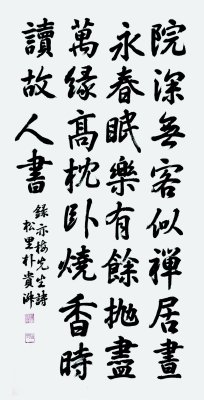 院深無客似禪居晝
永春眠樂有餘拋盡
萬緣高枕卧燒香時
讀故人書
錄亦梅先生詩
松里朴貴